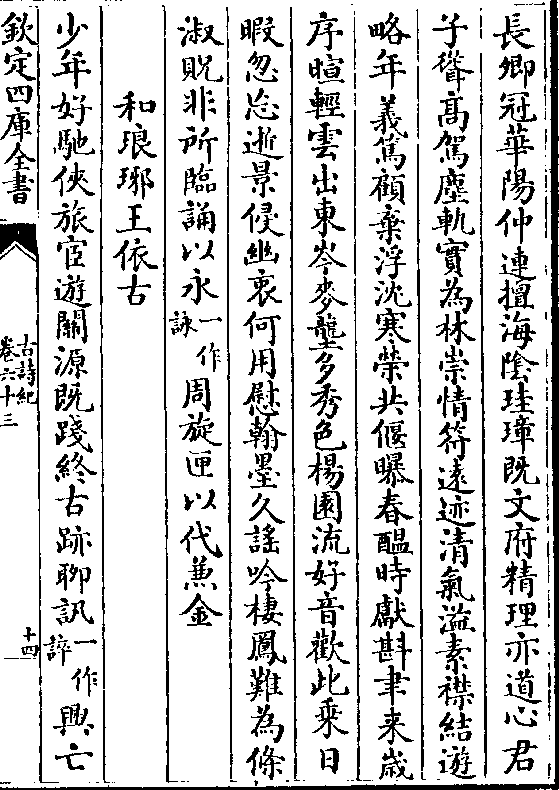 長卿冠華陽仲連擅海陰珪璋既文府精理亦道心君
子聳髙駕塵軌實為林崇情符遠迹清氣溢素襟結遊
略年義篤顧棄浮沈寒榮共偃曝春醖時獻斟聿来歳
序暄輕雲出東岑麥壟多秀色楊園流好音歡此乘日
暇忽忘逝景侵幽衷何用慰翰墨久謠吟棲鳳難為條
淑貺非所臨誦以永一作詠周旋匣以代兼金
和琅琊王依古
少年好馳俠旅宦遊關源既踐終古跡聊訊一作誶興亡
欽定四庫全書
古詩紀
卷六十三
十四